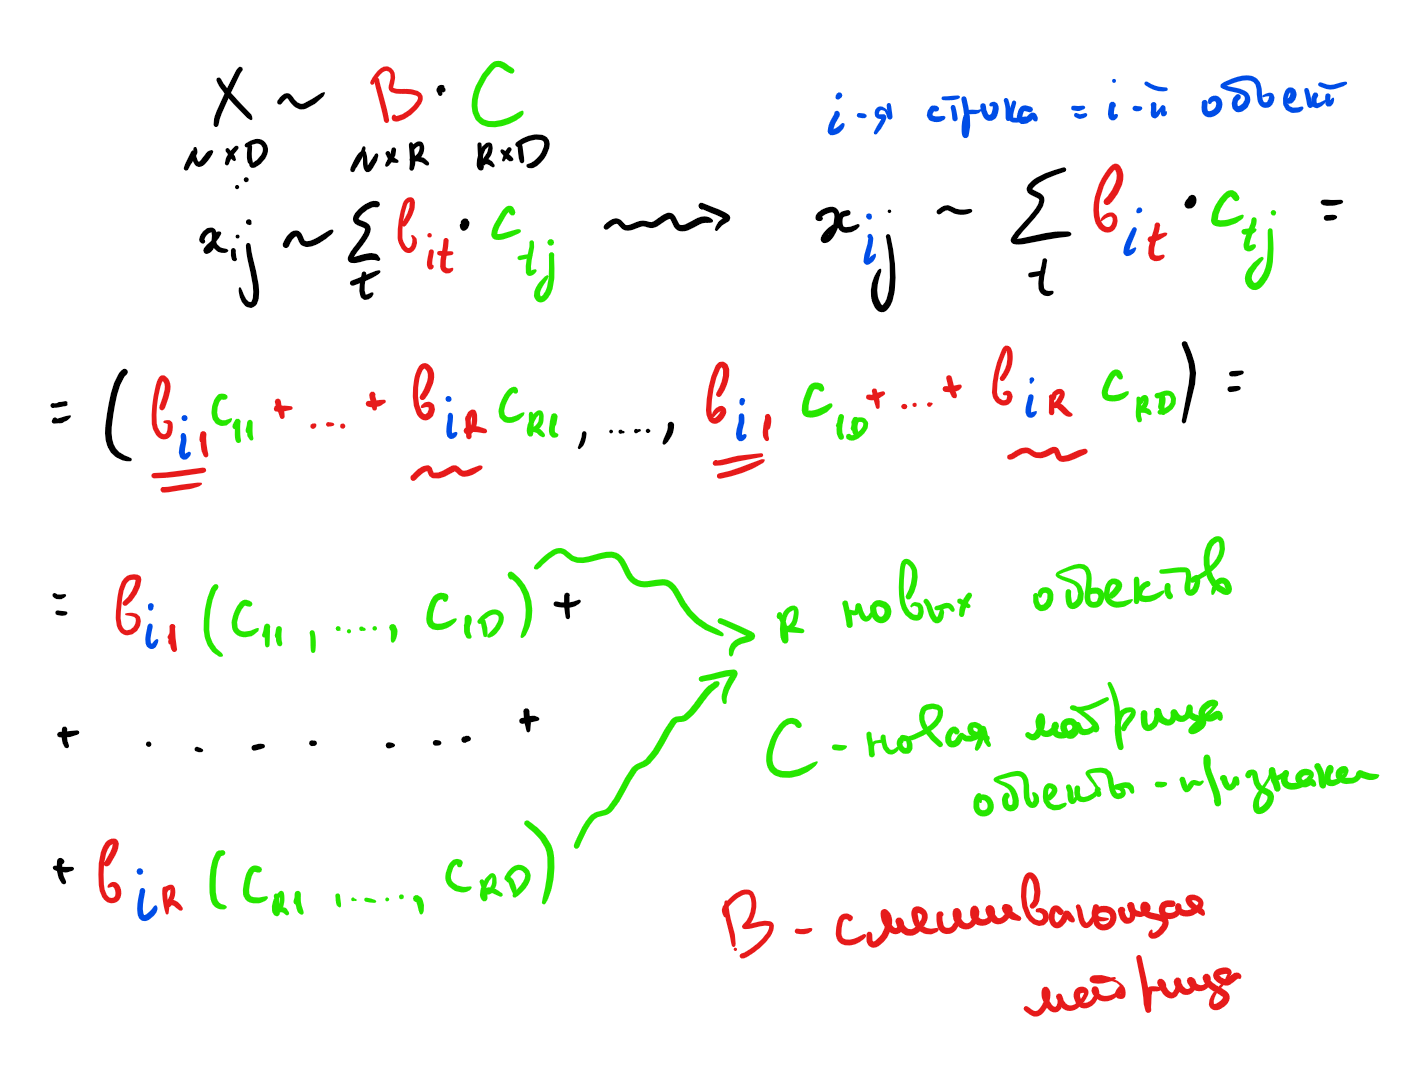 X ~ B · C
N×D N×R R×D
i-я строка = i-й объект
x_ij ~ Σ_t b_it · c_tj ⟿ x_ij ~ Σ_t b_it · c_tj =
= ( b_i1 c_11 + ... + b_iR c_R1 , ...., b_i1 c_1D + ... + b_iR c_RD ) =
= b_i1 ( c_11 , ...., c_1D ) +
+ . . . . . . . +
+ b_iR ( c_R1 , ...., c_RD )
R новых объектов
C - новая матрица
объекты - признаки
B - смешивающая
матрица